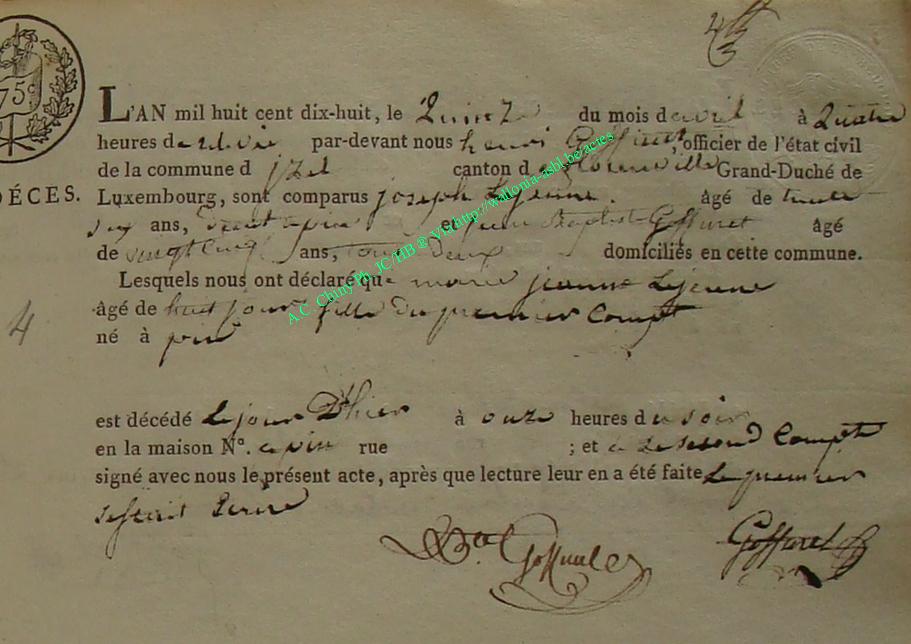 75c
4
L'AN mil huit cent dix-huit, le Quinze du mois d'avril à Quatre
heures de par-devant nous henri Goffinet, officier de l'état civil
de la commune d jzel canton de florenville Grand-Duché de
DÉCES. Luxembourg, sont comparus joseph Lejeune. âgé de trente
six ans, et jean Baptist Goffinet âgé
de vingt Cinq ans, tous deux domiciliés en cette commune.
Lesquels nous ont déclaré que marie jeanne Lejeune
âgé de huit jours fille du premier Compt
né à pin
4
est décédé Le jour D'hier à onze heures du soir
en la maison N°. a pin rue ; et a Le second Compt
signé avec nous le présent acte, après que lecture leur en a été faite Le premier
Goffinet
A.C. Chiny Ph. JC/HB ® via http://wallonia-asbl.be/actes